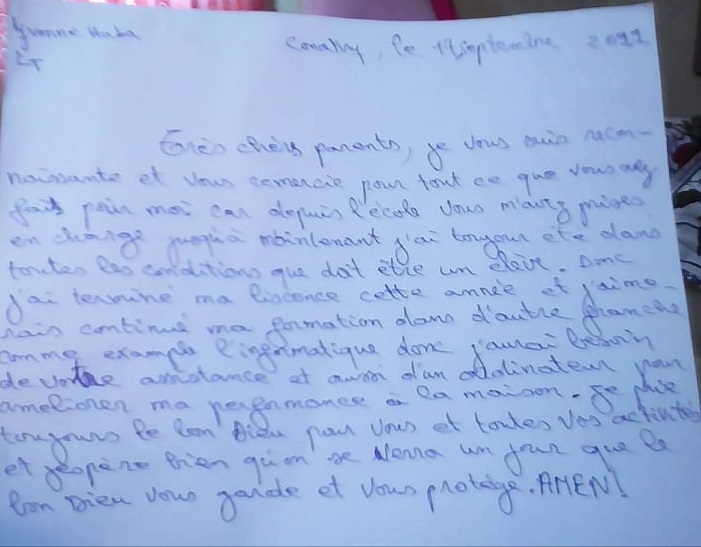 Yvonne Haba
LT
Conakry, le 17 septembre 2011
Très chèrs parents, je vous suis recon-
naissante et vous remercie pour tout ce que vous avez
fait pour moi car depuis l'école vous m'avez prises
en charge jusqu'à maintenant j'ai toujour été dans
toutes les conditions que doit être un élève. Donc
j'ai terminé ma liscence cette année et j'aime-
rais continué ma formation dans d'autre branche
comme example l'informatique donc j'aurai besoin
de votre assistance et aussi d'un ordinateur pour
améliorer ma performance à la maison. Je prie
toujours le bon Dieu pour vous et toutes vos activités
et j'espère bien qu'on se verra un jour que le
bon Dieu vous garde et vous protège. AMEN!